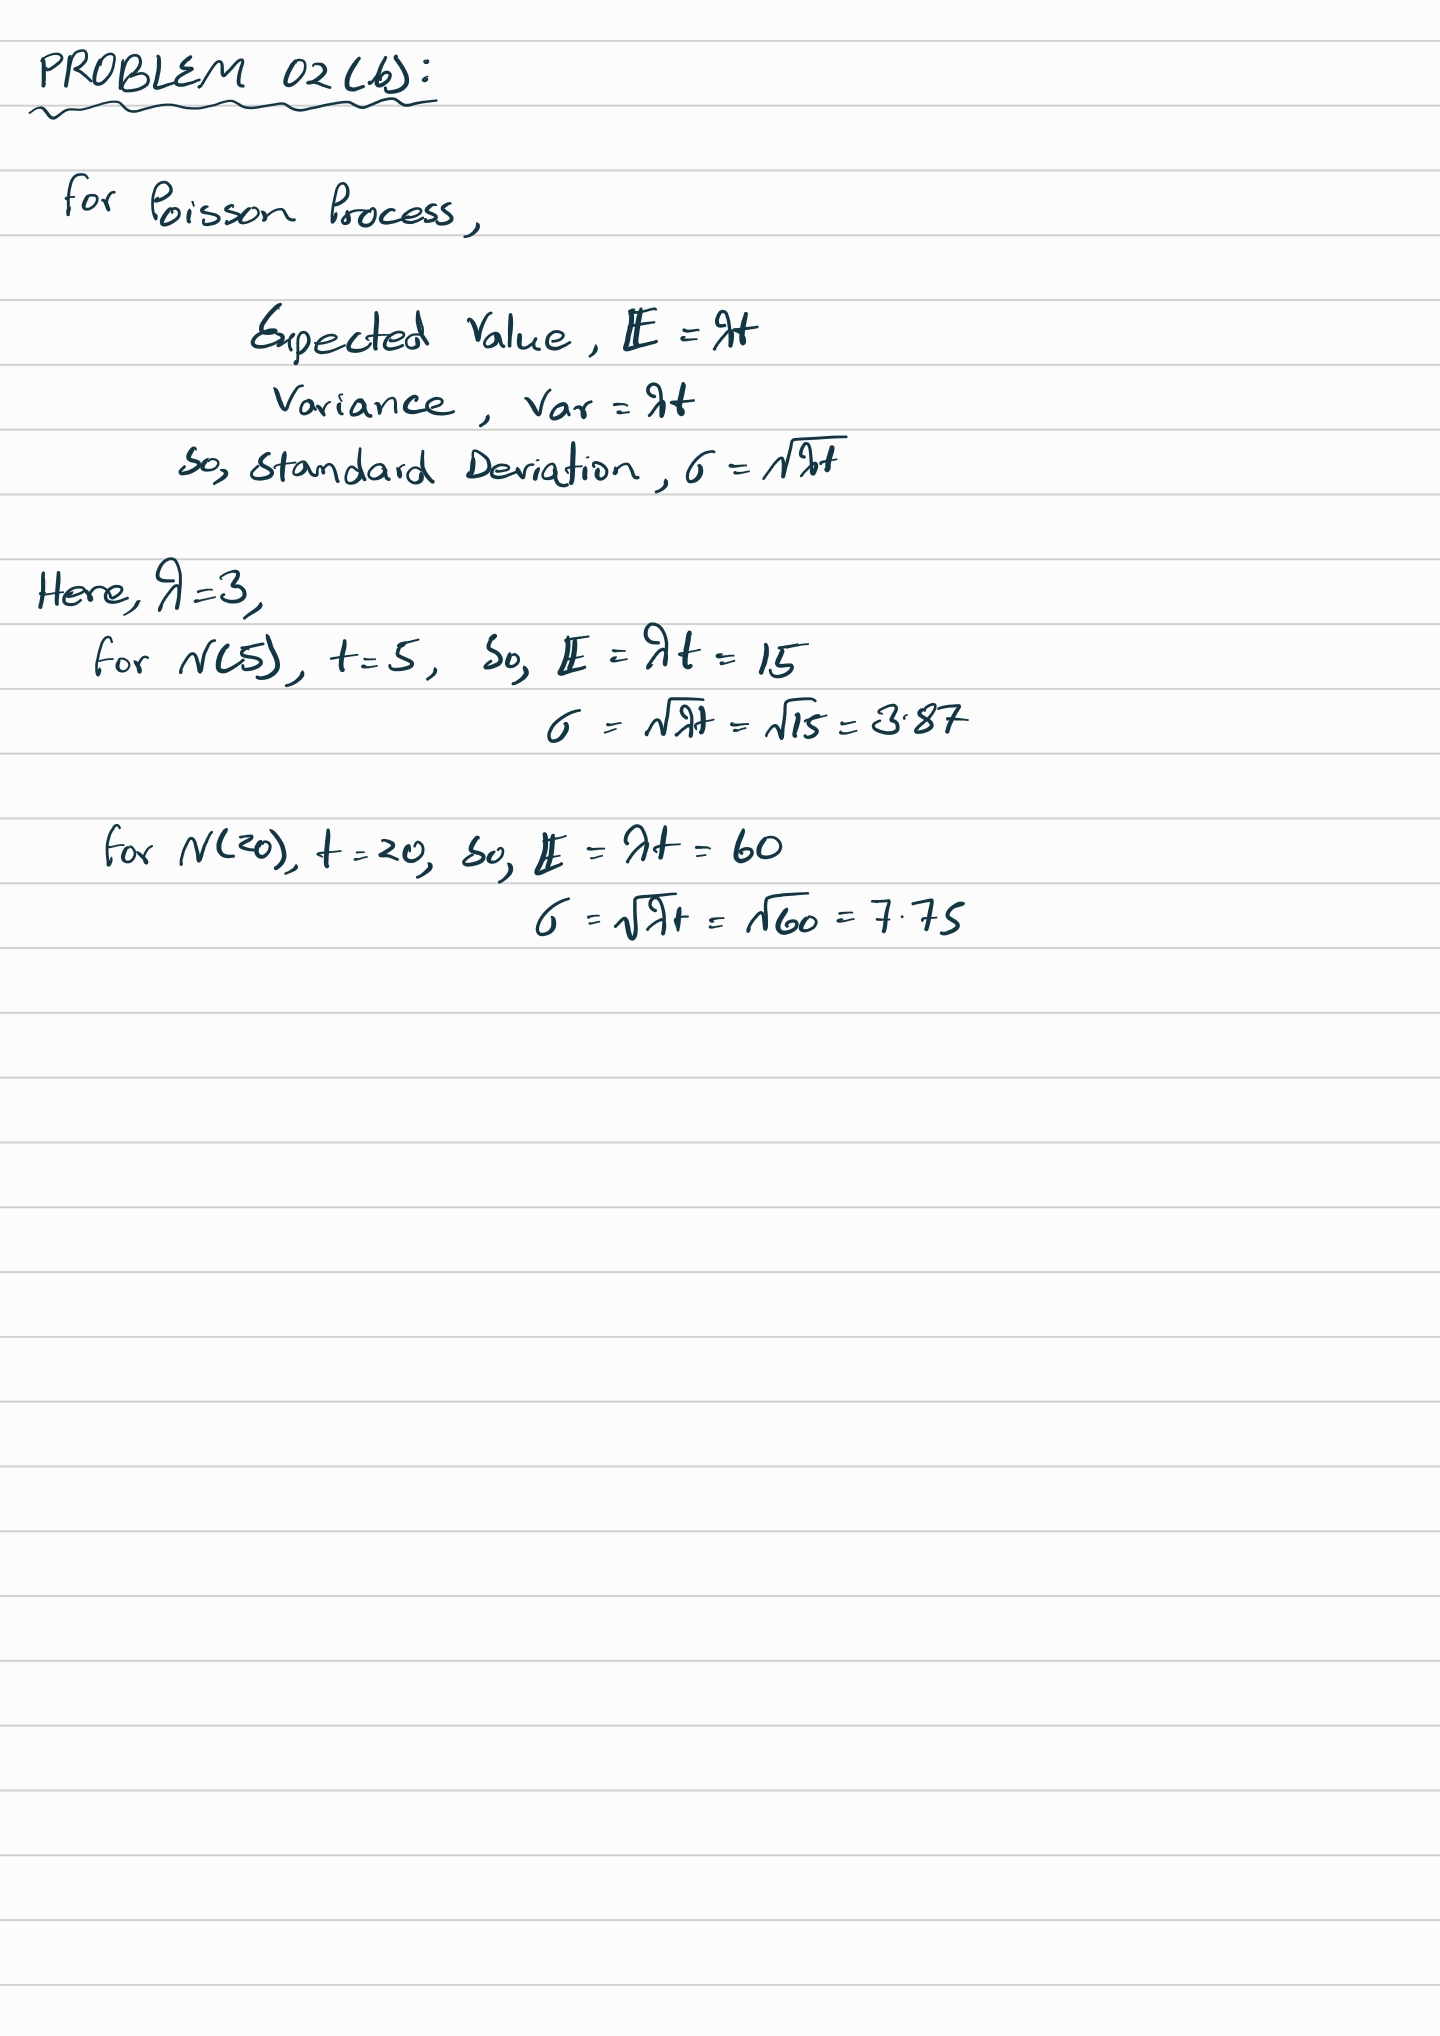 PROBLEM 02(b):
for Poisson Process,
Expected Value, 𝔼 = λt
Variance, Var = λt
So, Standard Deviation, σ = √λt
Here, λ=3,
for N(5), t=5, So, 𝔼 = λt = 15
σ = √λt = √15 = 3.87
for N(20), t=20, So, 𝔼 = λt = 60
σ = √λt = √60 = 7.75